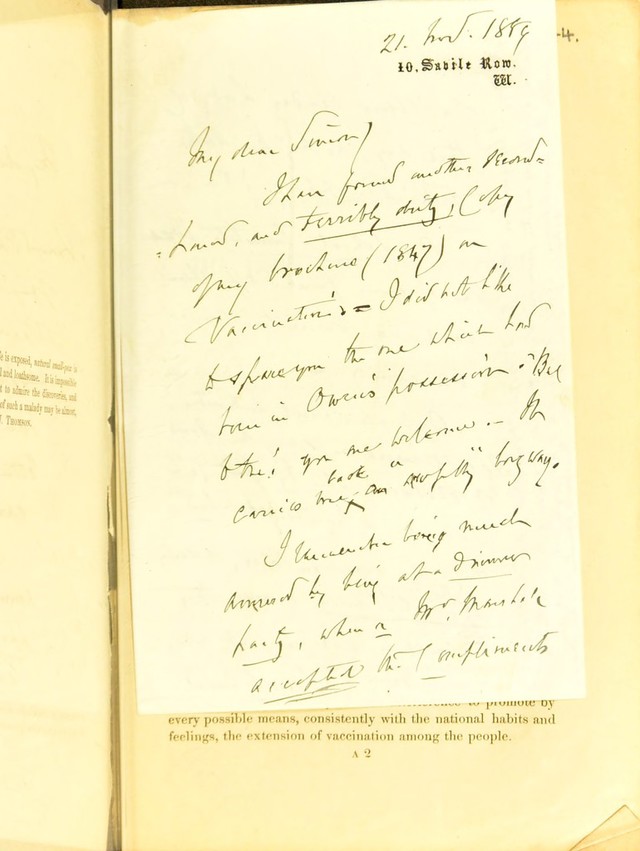 21. Nov. 1889
-4.
10, Savile Row.
W.
My dear Simon)
I have found another second=
=hand, and terribly dirty, Copy
of my brochure (1847) on
Vaccination. = I did not like
to spare you the one which had
been in Owen's possession. "But
you are welcome. – It
back
carries me an "awfully" long way.
I remember being much
amused by being at a dinner
party, when a Mr. Marshall
accepted the Compliments
e is exposed, natural small-pox is
l and loathsome. It is impossible
t to admire the discoveries, and
of such a malady may be almost,
. THOMSON.
to promote by
every possible means, consistently with the national habits and
feelings, the extension of vaccination among the people.
A 2